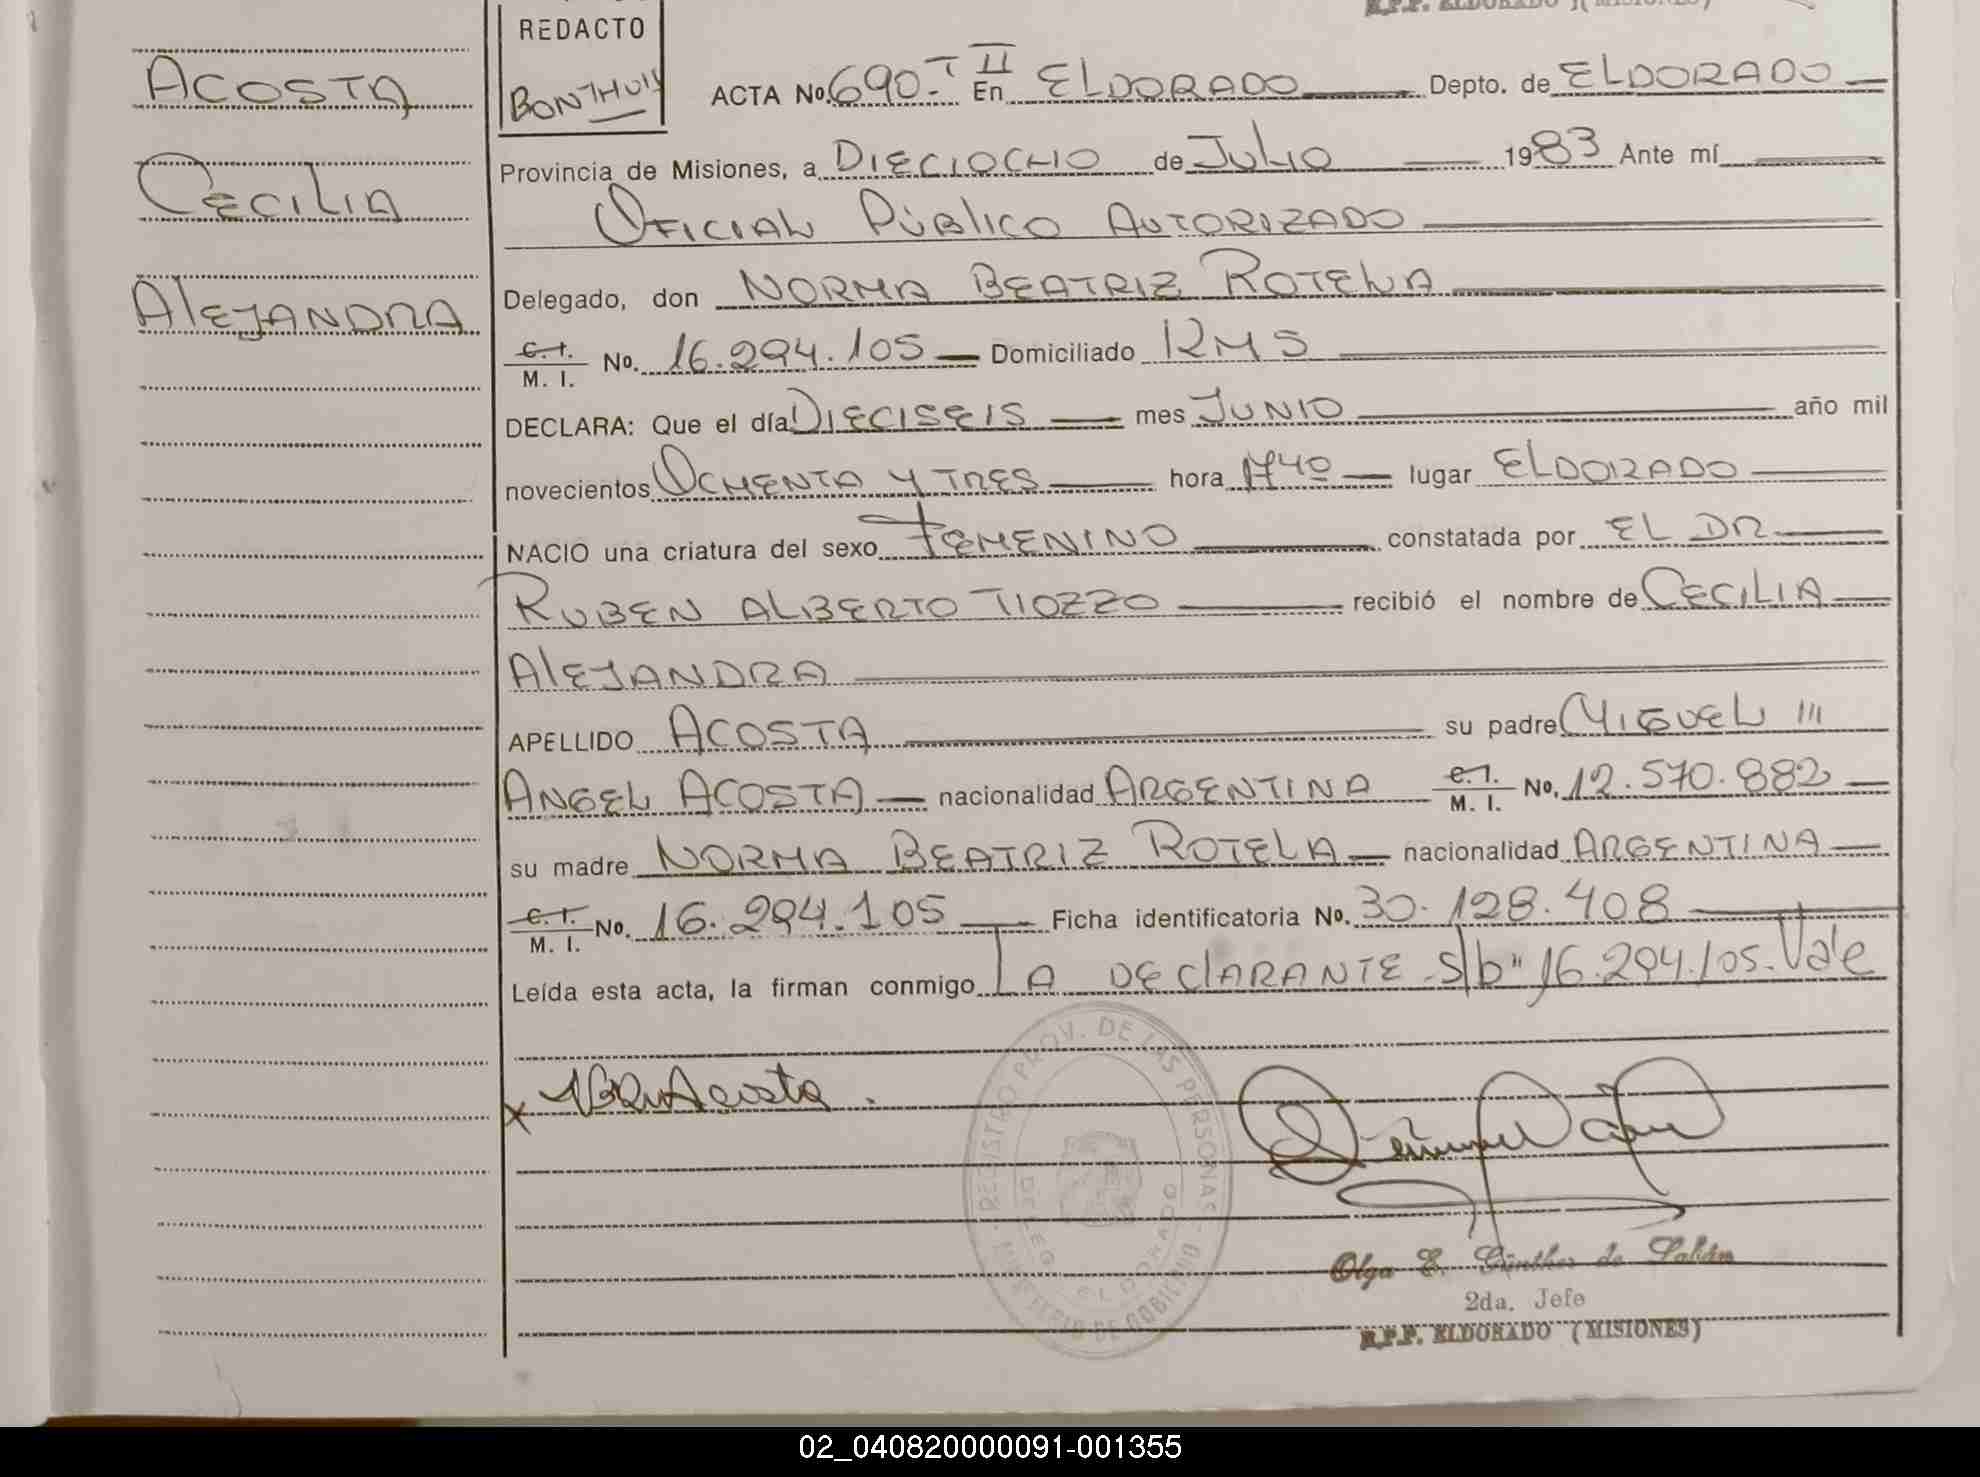 R.P.P. ELDORADO (MISIONES)
REDACTO
BONTHUIS
ACOSTA
CECILIA
ALEJANDRA
ACTA No. 690.- T II En ELDORADO Depto. de ELDORADO
Provincia de Misiones, a DIECIOCHO de JULIO 1983 Ante mí
OFICIAL PÚBLICO AUTORIZADO
Delegado, don NORMA BEATRIZ ROTELA
C. I. / M. I. No. 16.294.105 Domiciliado KM 5
DECLARA: Que el día DIECISEIS mes JUNIO año mil
novecientos OCHENTA Y TRES hora 1740 lugar ELDORADO
NACIO una criatura del sexo FEMENINO constatada por EL DR
RUBEN ALBERTO TIOZZO recibió el nombre de CECILIA
ALEJANDRA
APELLIDO ACOSTA su padre MIGUEL
ANGEL ACOSTA nacionalidad ARGENTINA C. I. / M. I. No. 12.570.882
su madre NORMA BEATRIZ ROTELA nacionalidad ARGENTINA
C. I. / M. I. No. 16.294.105 Ficha identificatoria No. 30.128.408
Leída esta acta, la firman conmigo LA DECLARANTE S/b" 16.294.105. Vale
x Acosta
REGISTRO PROV. DE LAS PERSONAS - MINISTERIO DE GOBIERNO
DELEG. ELDORADO
Olga E. Günther de
2da. Jefe
R.P.P. ELDORADO (MISIONES)
02_040820000091-001355